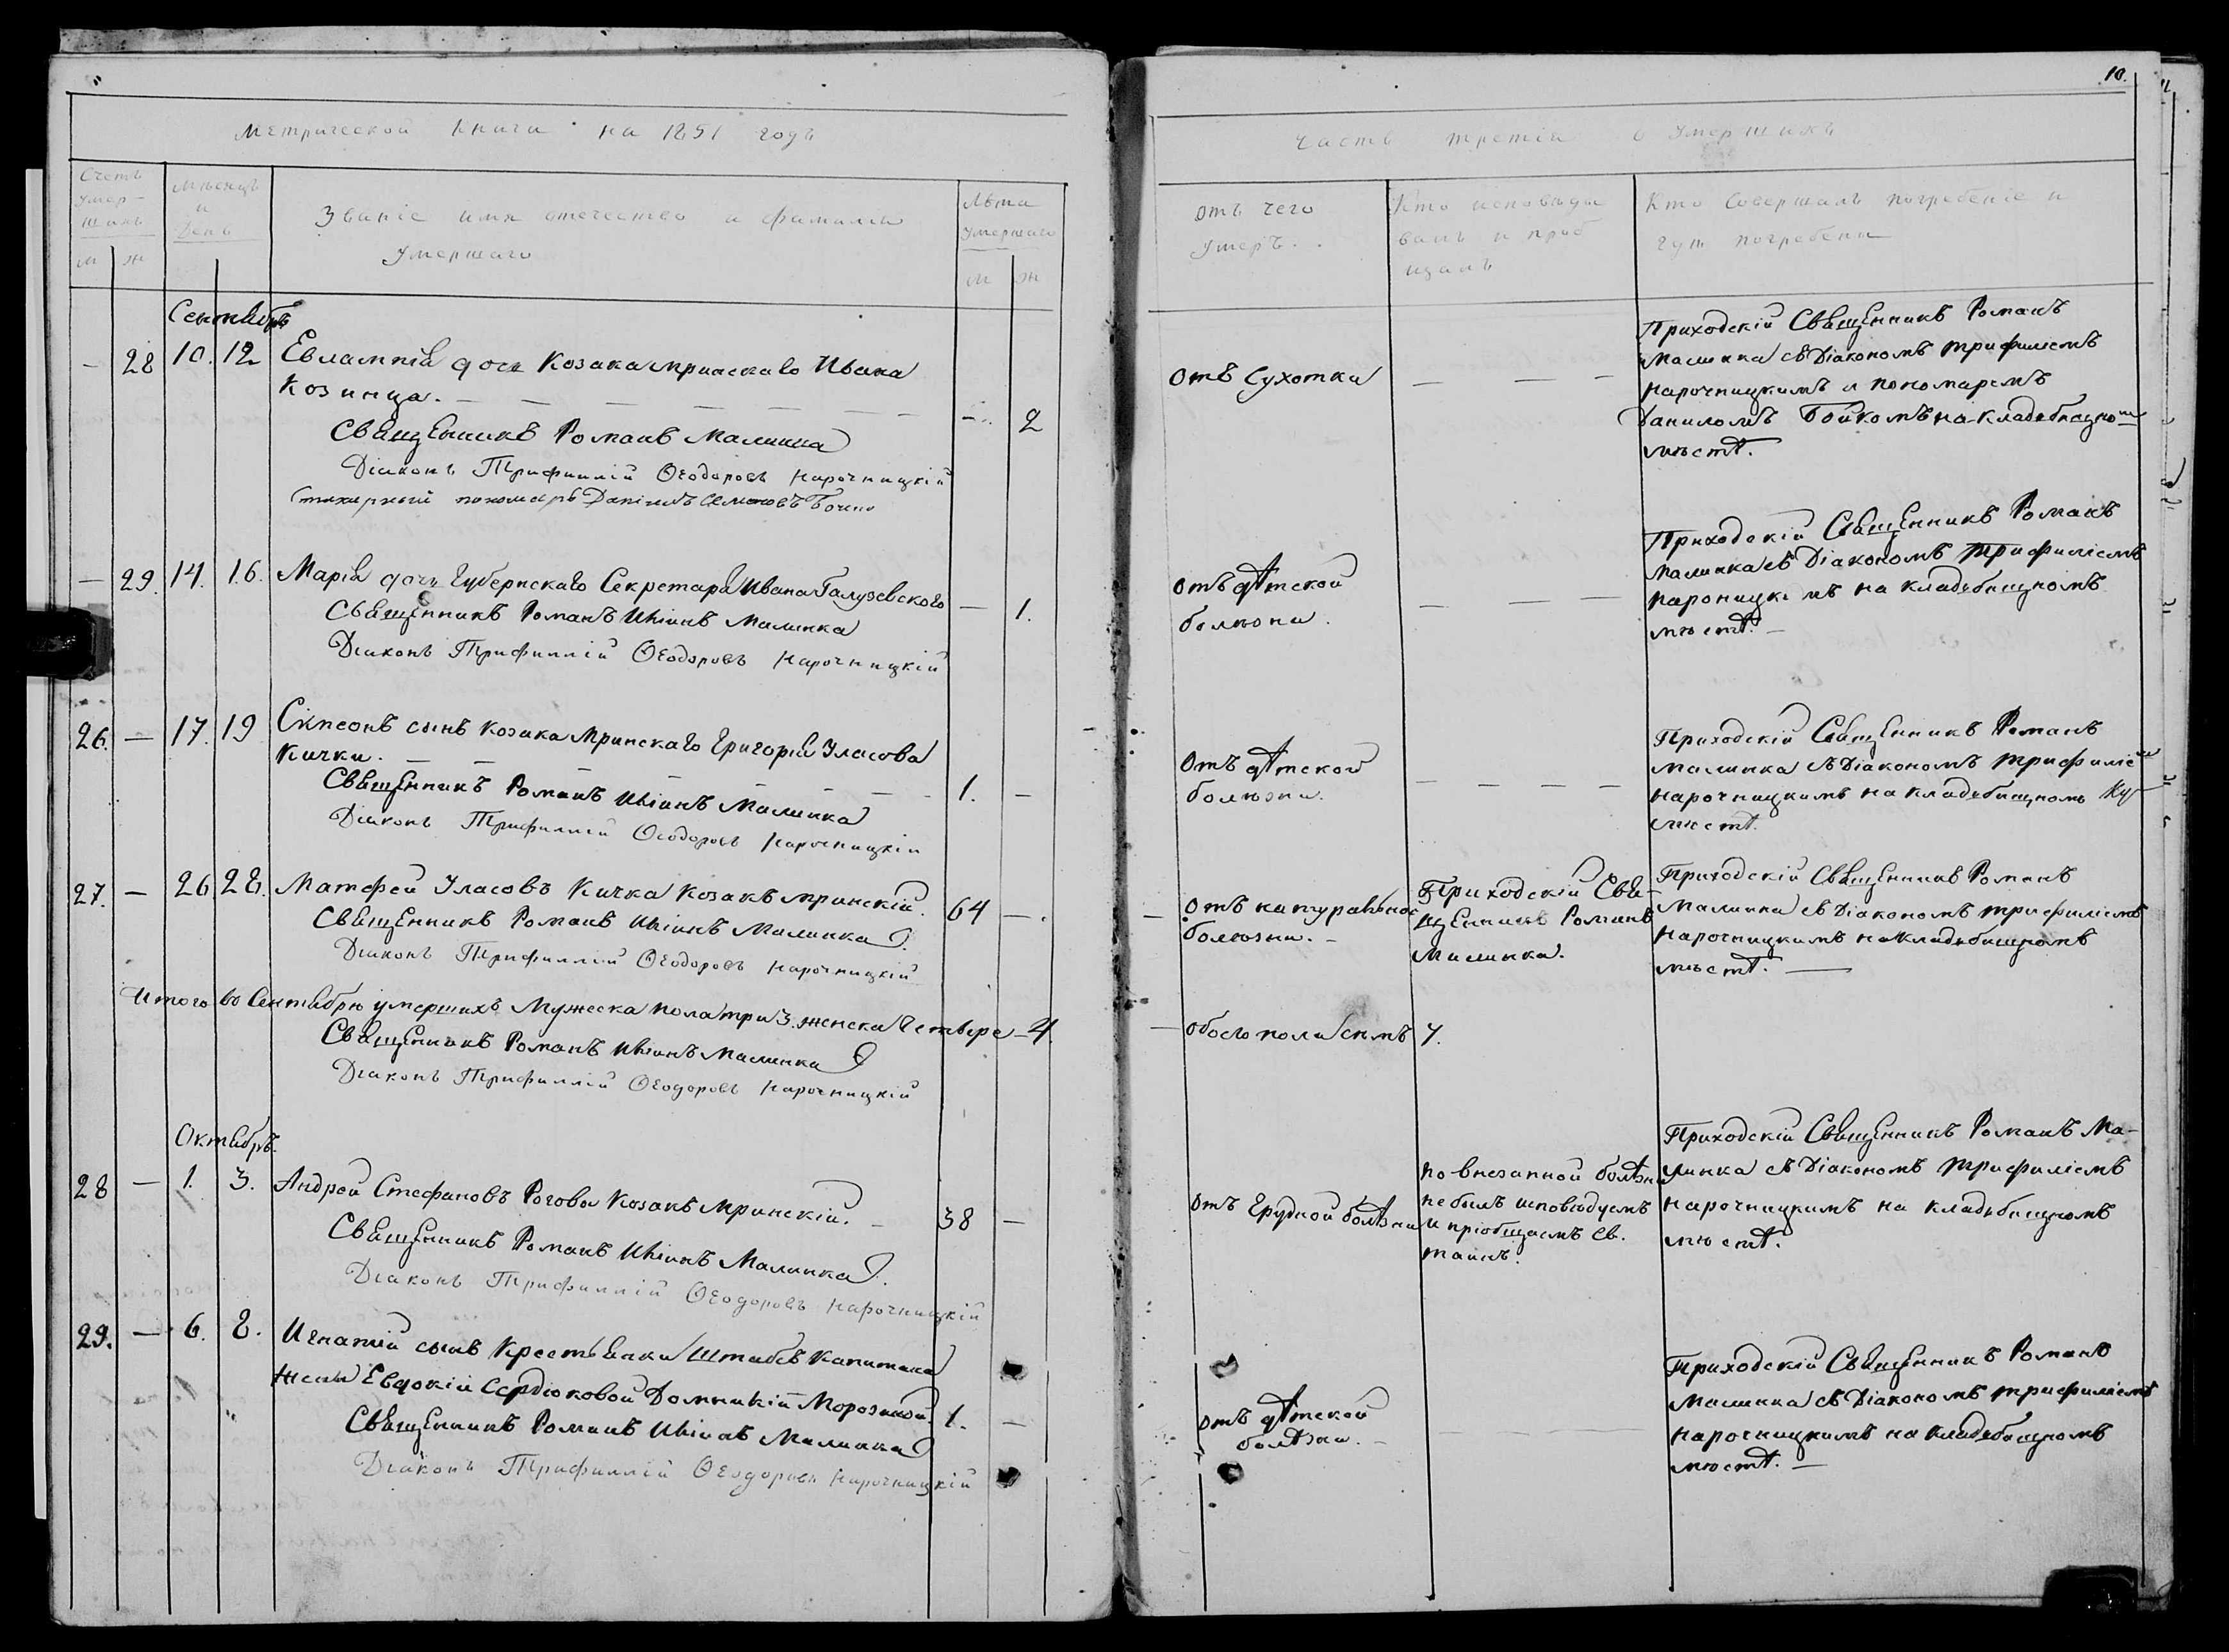 10.
Метрической книги на 1851 годъ
Часть третія о умершихъ
Счетъ умер-
шихъ
м ж
Мѣсяцъ
и
День
Званіе имя отечество и фамилія
Умершаго
Лѣта
Умершаго
м ж
Отъ чего
Умеръ.
Кто исповѣды
валъ и пріоб
щалъ
Кто Совершалъ погребеніе и
гдѣ погребены
Сентябрь
— 28 10. 12 Евлампія дочь Козака мринскаго Ивана
Козинца. — — — — — — —
—. 2
Священникъ Романъ Малинка
Діаконъ Трифиллій Ѳеодоровъ Нарочницкій
Стихарный пономарь Даніилъ Семеновъ Бойко
Отъ Сухотки
— — —
Приходскій Священникъ Романъ
Малинка съ Діакономъ Трифиліемъ
Нарочницкимъ и пономаремъ
Даниломъ Бойкомъ на кладобищно
мѣстѣ.
— 29. 14. 16. Марія дочь Губернскаго Секретаря Ивана Галузевского
— 1.
Священникъ Романъ Ильинъ Малинка
Діаконъ Трифиллій Ѳеодоровъ Нарочницкій
Отъ дѣтской
болѣзни.
— — —
Приходскій Священникъ Романъ
Малинка съ Діакономъ Трифиліемъ
Нарочницкимъ на кладобищномъ
мѣстѣ. —
26. — 17. 19 Симеонъ сынъ козака Мринскаго Григорія Уласова
Кички. — — — — — — —
1. —
Священникъ Романъ Ильинъ Малинка
Діаконъ Трифиллій Ѳеодоровъ Нарочницкій
Отъ дѣтской
болѣзни.
— — — —
Приходскій Священникъ Романъ
Малинка съ Діакономъ Трифиліе
Нарочницкимъ на кладобищномъ
мѣстѣ.
27. — 26. 28. Матфей Уласовъ Кичка козакъ мринскій.
64 —.
Священникъ Романъ Ильинъ Малинка
Діаконъ Трифиллій Ѳеодоровъ Нарочницкій
Отъ натуральной
болѣзни. —
Приходскій Свя-
щенникъ Романъ
Малинка.
Приходскій Священникъ Романъ
Малинка съ Діакономъ Трифиліемъ
Нарочницкимъ на кладобищномъ
мѣстѣ. —
Итого во Сентябрѣ умершихъ Мужеска пола три 3. женска Четверо — 4.
обоего пола семъ 7.
Священникъ Романъ Ильинъ Малинка
Діаконъ Трифиллій Ѳеодоровъ Нарочницкій
Октябрь.
28 — 1. 3. Андрей Стефановъ Рогова Козакъ Мринскій. —
38 —
Священникъ Романъ Ильинъ Малинка.
Діаконъ Трифиллій Ѳеодоровъ Нарочницкій
Отъ Грудной болѣзни
По внезапной болѣзни
не былъ исповѣдуемъ
и пріобщаемъ Св.
таинъ.
Приходскій Священникъ Романъ Ма-
линка съ Діакономъ Трифиліемъ
Нарочницкимъ на кладобищномъ
мѣстѣ.
29. — 6. 8. Игнатій сынъ Крестьянки Штабсъ Капитана
Жены Евдокіи Сердюковой Домникіи Морозной.
1. —
Священникъ Романъ Ильинъ Малинка
Діаконъ Трифиллій Ѳеодоровъ Нарочницкій
Отъ дѣтской
болѣзни. —
Приходскій Священникъ Романъ
Малинка съ Діакономъ Трифиліемъ
Нарочницкимъ на кладобищномъ
мѣстѣ. —